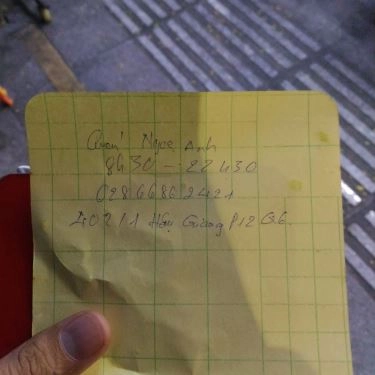 Quán Ngọc Anh
8h30 - 22h30
02866862421
402/1 Hậu Giang P12 Q6